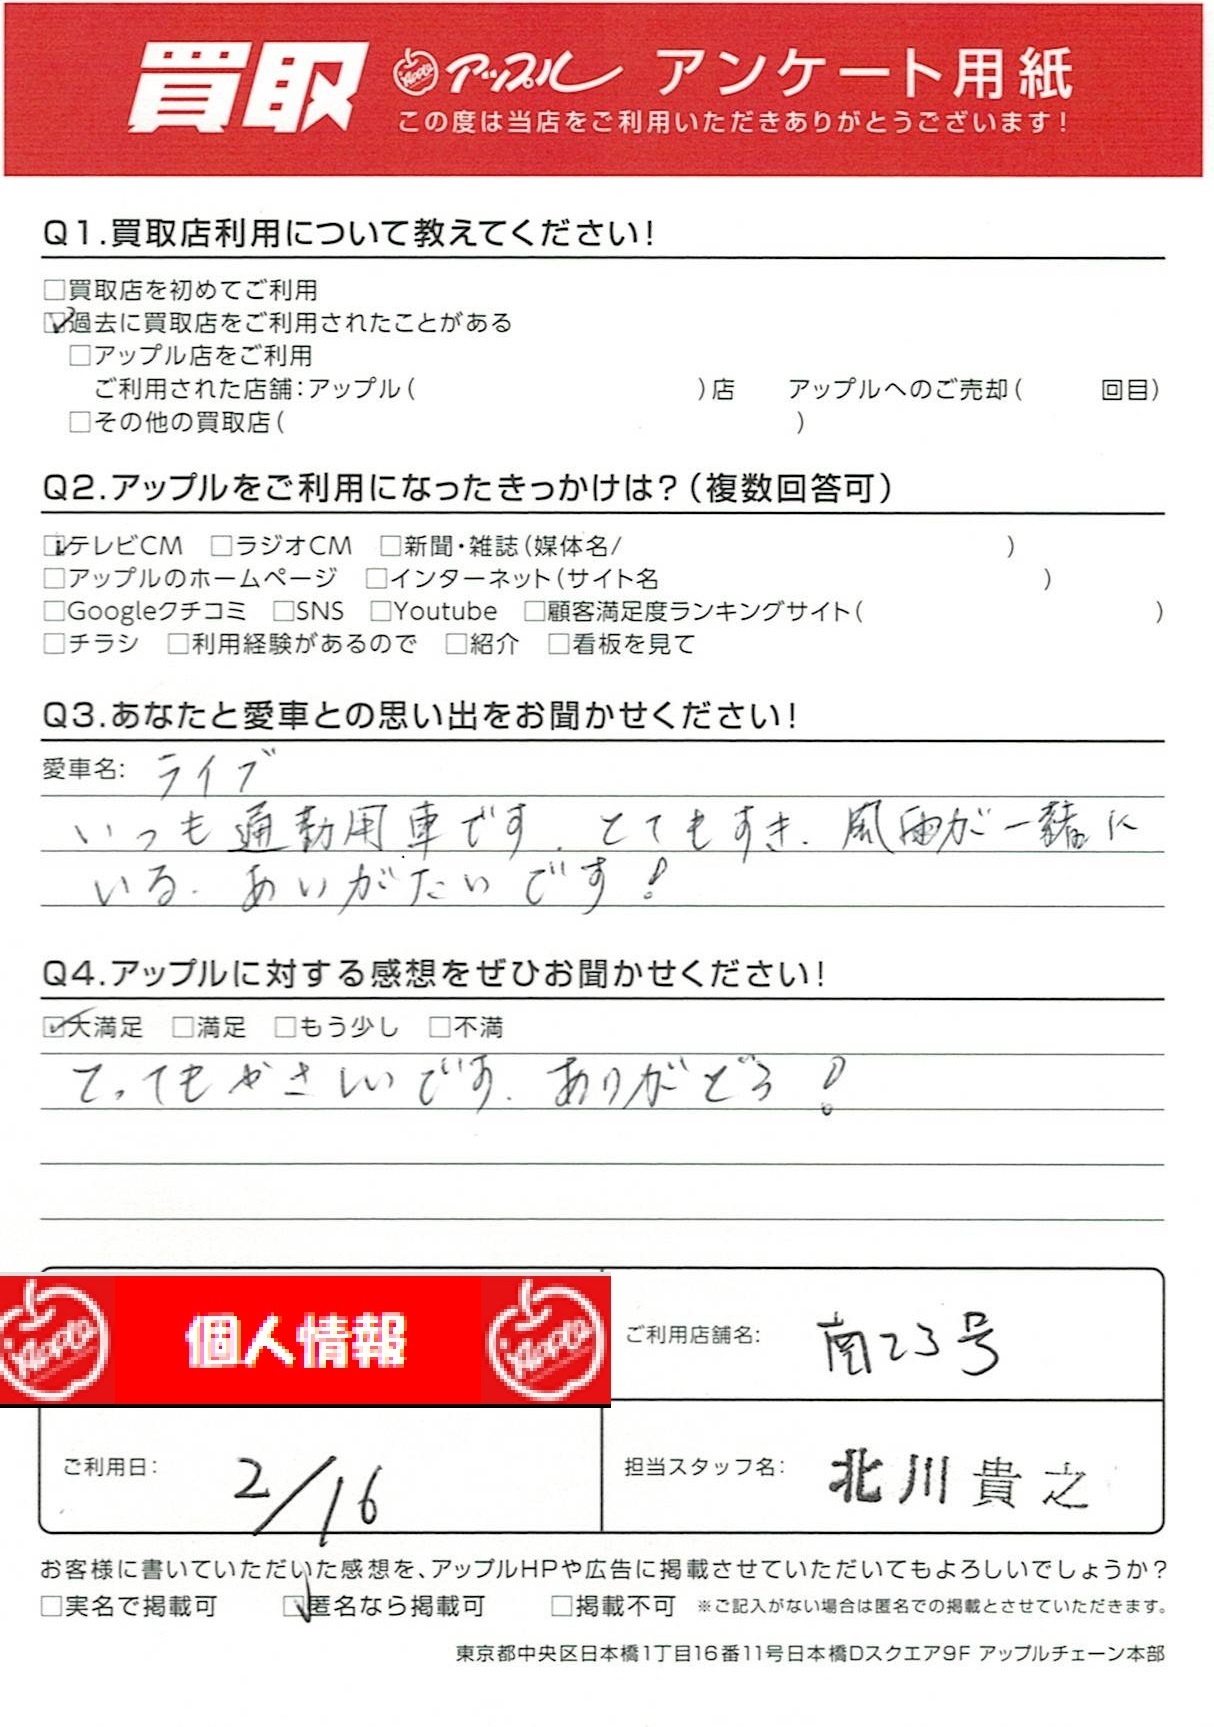 買取 アップル アンケート用紙
この度は当店をご利用いただきありがとうございます!
Q1.買取店利用について教えてください!
□買取店を初めてご利用
☑過去に買取店をご利用されたことがある
□アップル店をご利用
ご利用された店舗:アップル( )店 アップルへのご売却( 回目)
□その他の買取店( )
Q2.アップルをご利用になったきっかけは?(複数回答可)
☑テレビCM □ラジオCM □新聞・雑誌(媒体名/ )
□アップルのホームページ □インターネット(サイト名 )
□Googleクチコミ □SNS □Youtube □顧客満足度ランキングサイト( )
□チラシ □利用経験があるので □紹介 □看板を見て
Q3.あなたと愛車との思い出をお聞かせください!
愛車名: ライブ
いつも通勤用車です.とてもすき.風雨が一緒に
いる.あいがたいです!
Q4.アップルに対する感想をぜひお聞かせください!
☑大満足 □満足 □もう少し □不満
とってもやさしいです.ありがどう!
Apple 個人情報 Apple
ご利用店舗名: 南23号
ご利用日: 2/16
担当スタッフ名: 北川貴之
お客様に書いていただいた感想を、アップルHPや広告に掲載させていただいてもよろしいでしょうか?
□実名で掲載可 ☑匿名なら掲載可 □掲載不可 ※ご記入がない場合は匿名での掲載とさせていただきます。
東京都中央区日本橋1丁目16番11号日本橋Dスクエア9F アップルチェーン本部